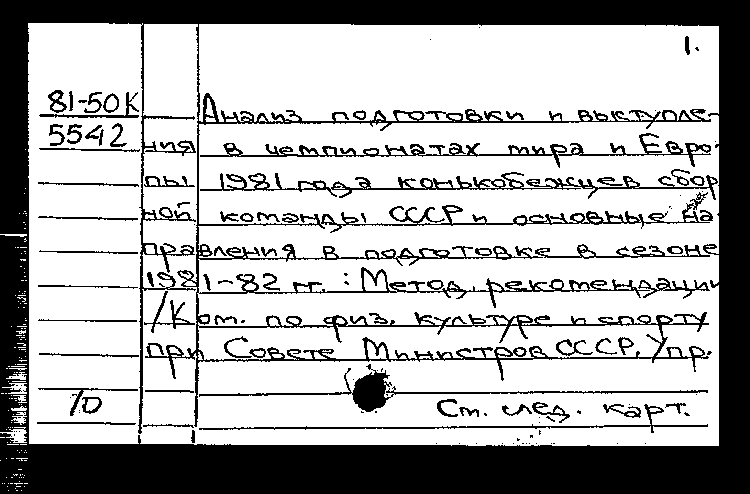 1.
81-50К Анализ подготовки и выступле-
5542 ния в чемпионатах мира и Евро-
пы 1981 года конькобежцев сбор
ной команды СССР и основные на-
правления в подготовке в сезоне
1981-82 гг. : Метод. рекомендации
/Ком. по физ. культуре и спорту
при Совете Министров СССР, Упр.
10 См. след. карт.